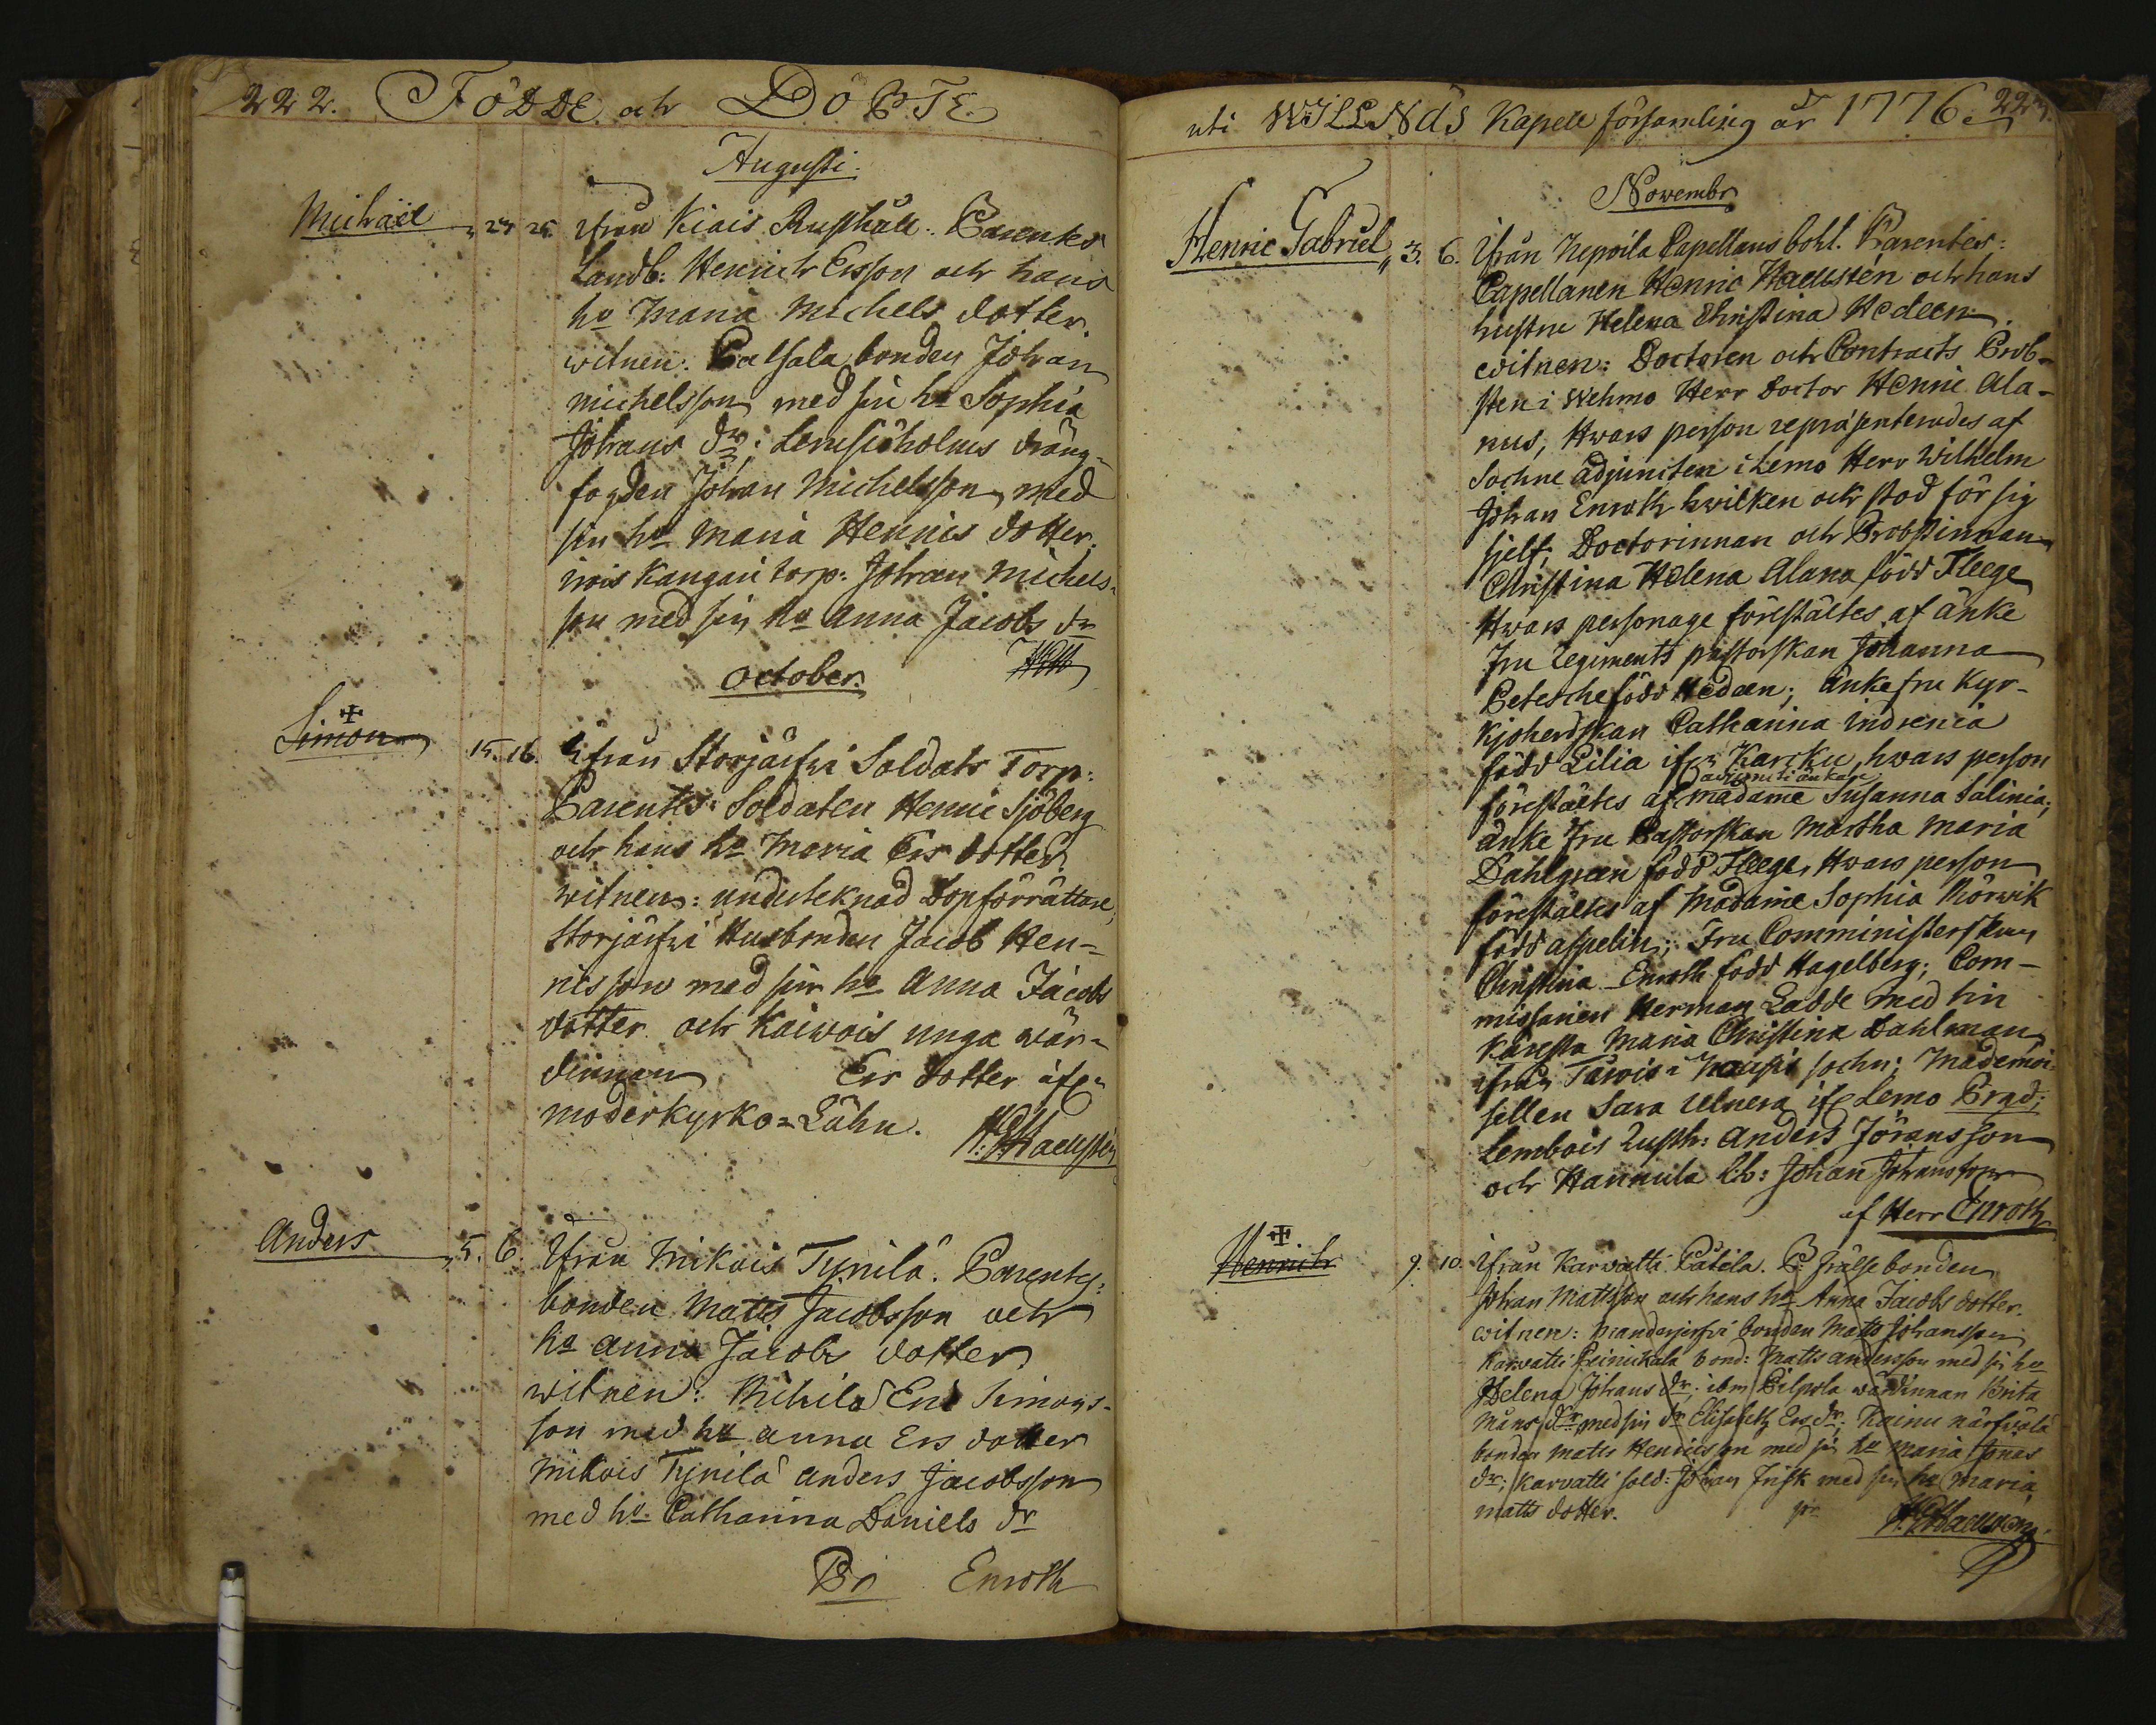 222. FÖDDE och DÖPTE
Augusti.
Michaël
24 25. ifrån Kiais Rusthåll. Parentes
Landb: Henrich Ersson och hans
hu Maria Michels dotter.
witnen: Palsala bonden Johan
Michelsson med sin hu Sophia
Johans dr; Lemsiöholms dräng-
fogden Johan Michelsson med
sin hu Maria Henrics dotter.
Kangari torp: Johan Michels-
son med sin hu Anna Jacobs dr
October.
Simon
15. 16. ifrån Storjärfwi Soldats Torp:
Parentes: Soldaten Henric Sjöberg
och hans hu Maria Ers dotter
witnen: underteknad dopförrättare,
Storjärfwi Husbonden Jacob Hen-
ricsson med sin hu Anna Jacobs
dotter och Kaiwois unga wär-
dinnan Ers dotter ifr
moderkyrko=Låhn.
Anders
5. 6. ifrån Mikois Tynilä. Parentes:
bonden Matts Jacobsson och
hu Anna Jacobs dotter
witnen: Eric Simons-
son med hu Anna Ers dotter
Mikois Tynilä Anders Jacobsson
med hu Catharina Daniels dr
Pr Enroth
uti WILLNÄS Kapell församling år 1776. 223.
Novembr
Henric Gabriel
3. 6. ifrån Nepoila Capellans bohl. Parentes:
Capellanen Henric Haellstén och hans
hustru Helena Christina Hedeen.
witnen: Doctoren och Contracts Prob-
sten i Wehmo Herr Doctor Henric Ala-
nus, Hwars person repræsenterades af
Sochne adjuncten i Lemo Herr Wilhelm
Johan Enroth hwilken och stod för sig
sjelf; Doctorinnan och Probstinnan
Christina Helena Alana född Fleege
Hwars personage förestältes af änke
Fru Regiments pastorskan Johanna
Petesche född Hedeen; änkefru Kyr-
kjoherdskan Catharina Indrenia
född Lilia ifrn Karcku, hwars person
förestältes af Madame Susanna Salinia;
änke Fru Pastorskan Martha Maria
Dahlgreen född Fleege, Hwars person
förestältes af Madame Sophia Mörwik
född Aspelin; Fru Comministerskan
Christina Enroth född Hagelberg; Com-
missarien Herman Ladde med sin
käresta Maria Christina Dahlman
ifrån Tawois i Nousis sochn; Mademoi-
sellen Sara Ulnera ifr Lemo Prgd;
Lembois Rusth: Anders Jöransson
och Hannula lb: Johan Johansson
af Herr Enroth
Henrich
9. 10. ifrån Karwatti Patila. P. frälsebonden
Johan Mattsson och hans hu Anna Jacobs dotter.
witnen: bonden Matts Johansson
Karwatti bond: Matts Andersson med sin hu
Helena Johans dr; ibm Pilpola wärdinnan Brita
Måns dr med sin dr Elisabeth Ers dr; Kainu
bonden Matts Henricsson med sin hu Maria Jonas
dr; Karwatti sold: Johan Frisk med sin hu Maria
Matts dotter. pr